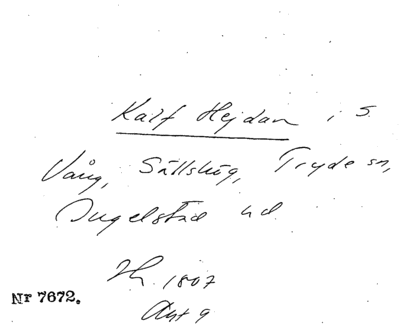 Kalf Hejdan i S.
Vång, Sällshög, Tryde sn,
Ingelstad hd
Hh. 1807
Akt 9
Nr 7672.